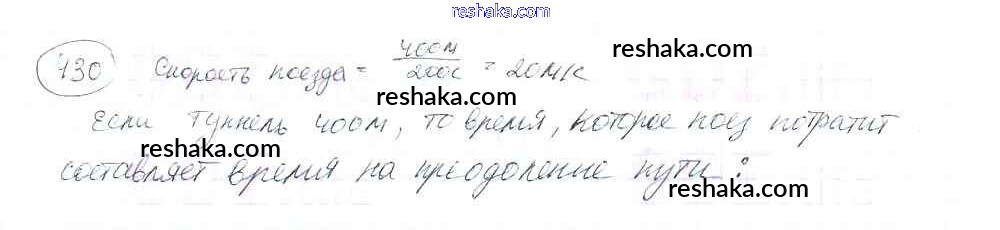 reshaka.com
430 Скорость поезда = 400м / 200с = 20м/с
reshaka.com
reshaka.com
Если туннель 400м, то время, которое поез потратит
reshaka.com
reshaka.com
составляет время на преодоление пути:
reshaka.com
reshaka.com